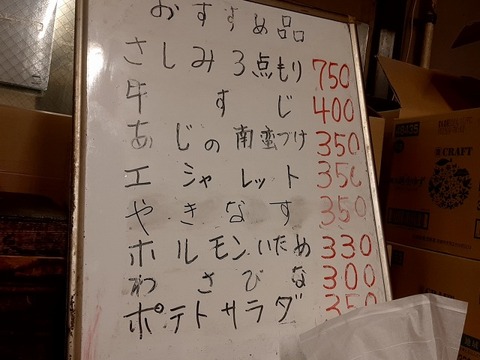 おすすめ品
さしみ3点もり 750
牛すじ 400
あじの南蛮づけ 350
エシャレット 350
やきなす 350
ホルモンいため 330
わさびな 300
ポテトサラダ 350
CRAFT